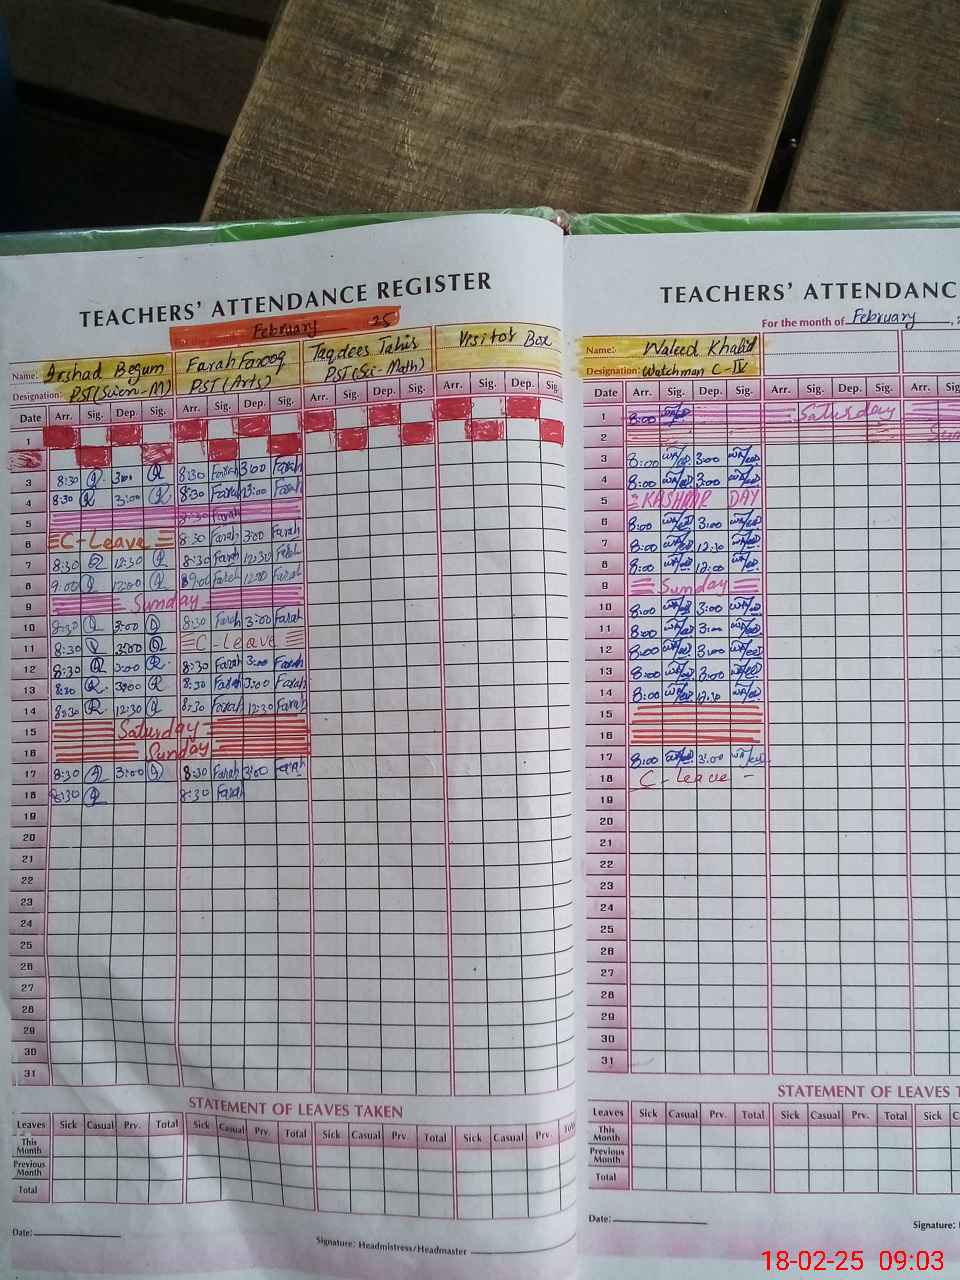 TEACHERS' ATTENDANCE REGISTER
February 25
Name: Arshad Begum Farah Farooq Taqdees Tahir Visitor Box
Designation: PST(Arts) PST(Sci-Math)
Date Arr. Sig. Dep. Sig. Arr. Sig. Dep. Sig. Arr. Sig. Dep. Sig. Arr. Sig. Dep. Sig.
1
3 8:30 3:00 8:30 Farah 3:00 Farah
4 8:30 3:00 8:30 Farah 3:00 Farah
5 8:30 Farah
6 C-Leave 8:30 Farah 3:00 Farah
7 8:30 12:30 8:30 Farah 12:30 Farah
8 9:00 12:00 9:00 Farah 12:00 Farah
9 Sunday
10 8:30 3:00 8:30 Farah 3:00 Farah
11 8:30 3:00 C-Leave
12 8:30 3:00 8:30 Farah 3:00 Farah
13 8:30 3:00 8:30 Farah 3:00 Farah
14 8:30 12:30 8:30 Farah 12:30 Farah
15 Saturday
16 Sunday
17 8:30 3:00 8:30 Farah 3:00 Farah
18 8:30 8:30 Farah
19
20
21
22
23
24
25
26
27
28
29
30
31
STATEMENT OF LEAVES TAKEN
Leaves Sick Casual Prv. Total Sick Casual Prv. Total Sick Casual Prv. Total Sick Casual Prv.
This Month
Previous Month
Total
Date:
Signature: Headmistress/Headmaster
TEACHERS' ATTENDANC
For the month of February
Name: Waleed Khalid
Designation: Watchman C-IV
Date Arr. Sig. Dep. Sig. Arr. Sig. Dep. Sig. Arr.
1 8:00 Saturday
2
3 8:00 3:00
4 8:00 3:00
5 KASHMIR DAY
6 8:00 3:00
7 8:00 12:30
8 8:00 12:00
9 Sunday
10 8:00 3:00
11 8:00 3:00
12 8:00 3:00
13 8:00 3:00
14 8:00 12:30
15
16
17 8:00 3:00
18 C-leave -
19
20
21
22
23
24
25
26
27
28
29
30
31
STATEMENT OF LEAVES
Leaves Sick Casual Prv. Total Sick Casual Prv. Total Sick
This Month
Previous Month
Total
Date:
Signature:
18-02-25 09:03